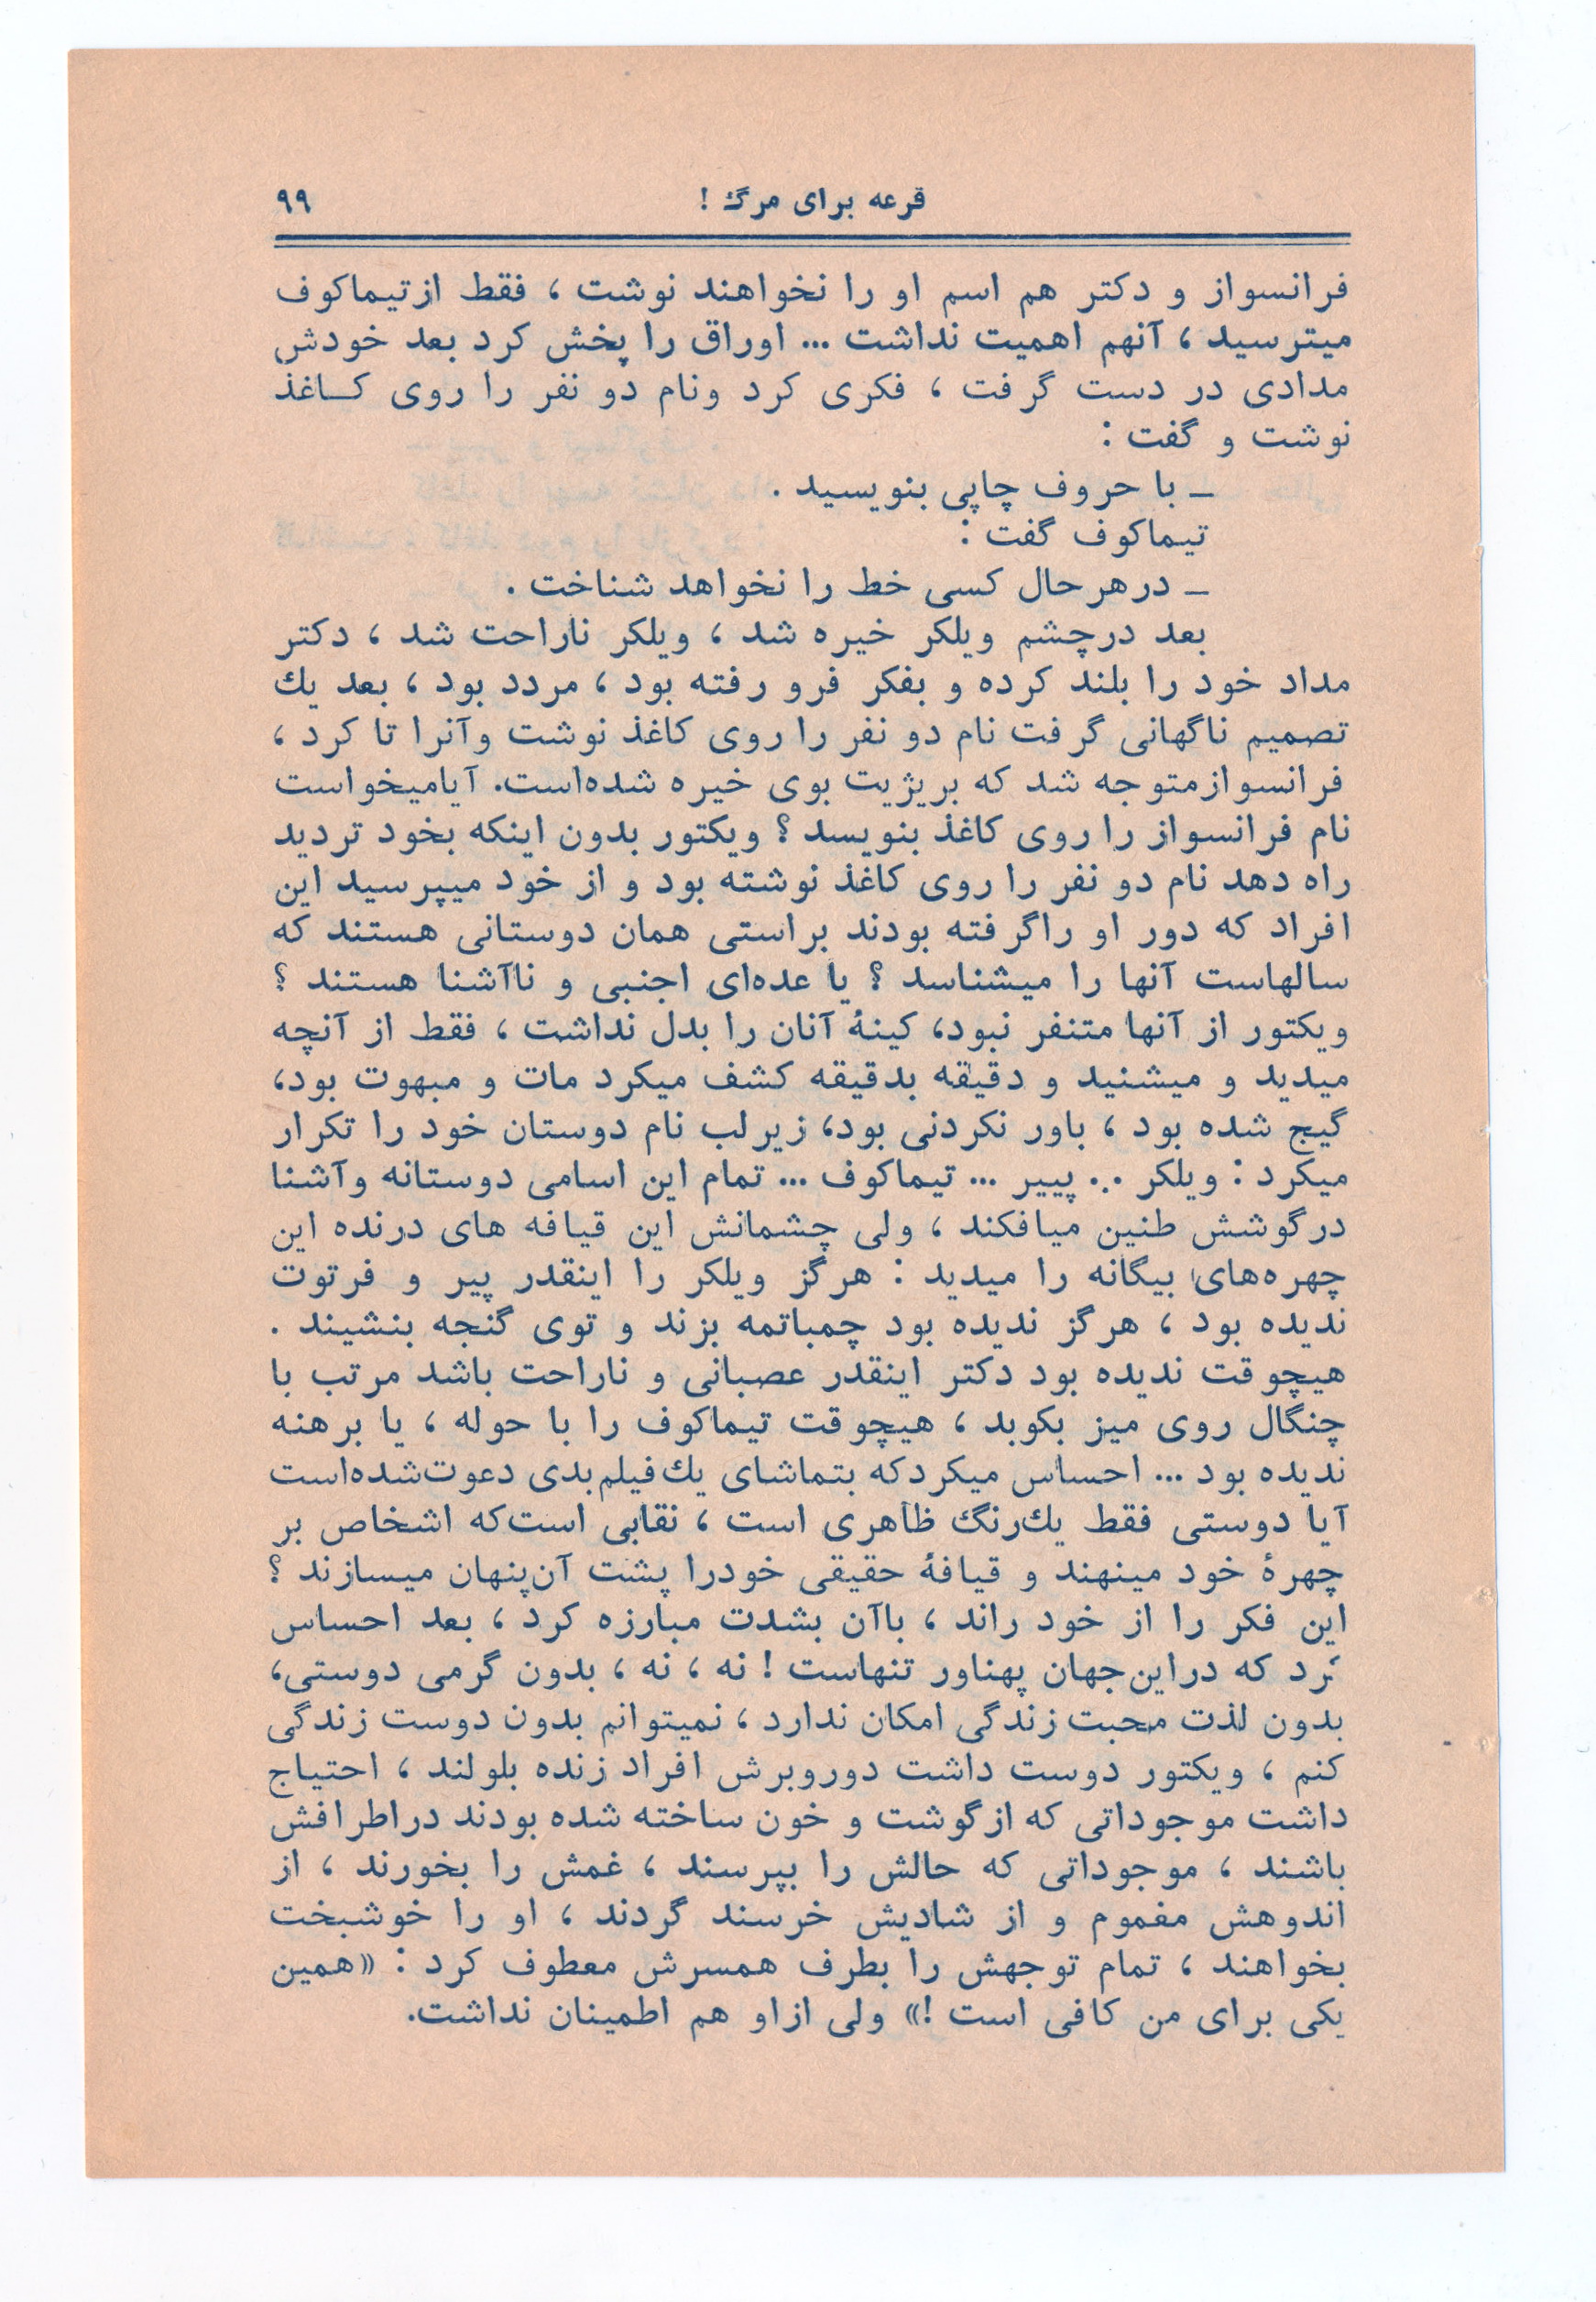 قرعه برای مرگ !
۹۹
فرانسواز و دکتر هم اسم او را نخواهند نوشت ، فقط ازتیماکوف
میترسید ، آنهم اهمیت نداشت ... اوراق را پخش کرد بعد خودش
مدادی در دست گرفت ، فکری کرد ونام دو نفر را روی کـاغذ
نوشت و گفت :
ـ با حروف چاپی بنویسید .
تیماکوف گفت :
ـ درهرحال کسی خط را نخواهد شناخت .
بعد درچشم ویلکر خیره شد ، ویلکر ناراحت شد ، دکتر
مداد خود را بلند کرده و بفکر فرو رفته بود ، مردد بود ، بعد یك
تصمیم ناگهانی گرفت نام دو نفر را روی کاغذ نوشت وآنرا تا کرد ،
فرانسوازمتوجه شد که بریژیت بوی خیره شده‌است. آیامیخواست
نام فرانسواز را روی کاغذ بنویسد ؟ ویکتور بدون اینکه بخود تردید
راه دهد نام دو نفر را روی کاغذ نوشته بود و از خود میپرسید این
افراد که دور او راگرفته بودند براستی همان دوستانی هستند که
سالهاست آنها را میشناسد ؟ یا عده‌ای اجنبی و ناآشنا هستند ؟
ویکتور از آنها متنفر نبود، کینهٔ آنان را بدل نداشت ، فقط از آنچه
میدید و میشنید و دقیقه بدقیقه کشف میکرد مات و مبهوت بود،
گیج شده بود ، باور نکردنی بود، زیرلب نام دوستان خود را تکرار
میکرد : ویلکر ... پییر ... تیماکوف ... تمام این اسامی دوستانه وآشنا
درگوشش طنین میافکند ، ولی چشمانش این قیافه های درنده این
چهره‌های بیگانه را میدید : هرگز ویلکر را اینقدر پیر و فرتوت
ندیده بود ، هرگز ندیده بود چمباتمه بزند و توی گنجه بنشیند .
هیچوقت ندیده بود دکتر اینقدر عصبانی و ناراحت باشد مرتب با
چنگال روی میز بکوبد ، هیچوقت تیماکوف را با حوله ، یا برهنه
ندیده بود ... احساس میکردکه بتماشای یك‌فیلم‌بدی دعوت‌شده‌است
آیا دوستی فقط یك‌رنگ ظاهری است ، نقابی است‌که اشخاص بر
چهرهٔ خود مینهند و قیافهٔ حقیقی خودرا پشت آن‌پنهان میسازند ؟
این فکر را از خود راند ، باآن بشدت مبارزه کرد ، بعد احساس
کرد که دراین‌جهان پهناور تنهاست ! نه ، نه ، بدون گرمی دوستی،
بدون لذت محبت زندگی امکان ندارد ، نمیتوانم بدون دوست زندگی
کنم ، ویکتور دوست داشت دوروبرش افراد زنده بلولند ، احتیاج
داشت موجوداتی که ازگوشت و خون ساخته شده بودند دراطرافش
باشند ، موجوداتی که حالش را بپرسند ، غمش را بخورند ، از
اندوهش مغموم و از شادیش خرسند گردند ، او را خوشبخت
بخواهند ، تمام توجهش را بطرف همسرش معطوف کرد : «همین
یکی برای من کافی است !» ولی ازاو هم اطمینان نداشت.